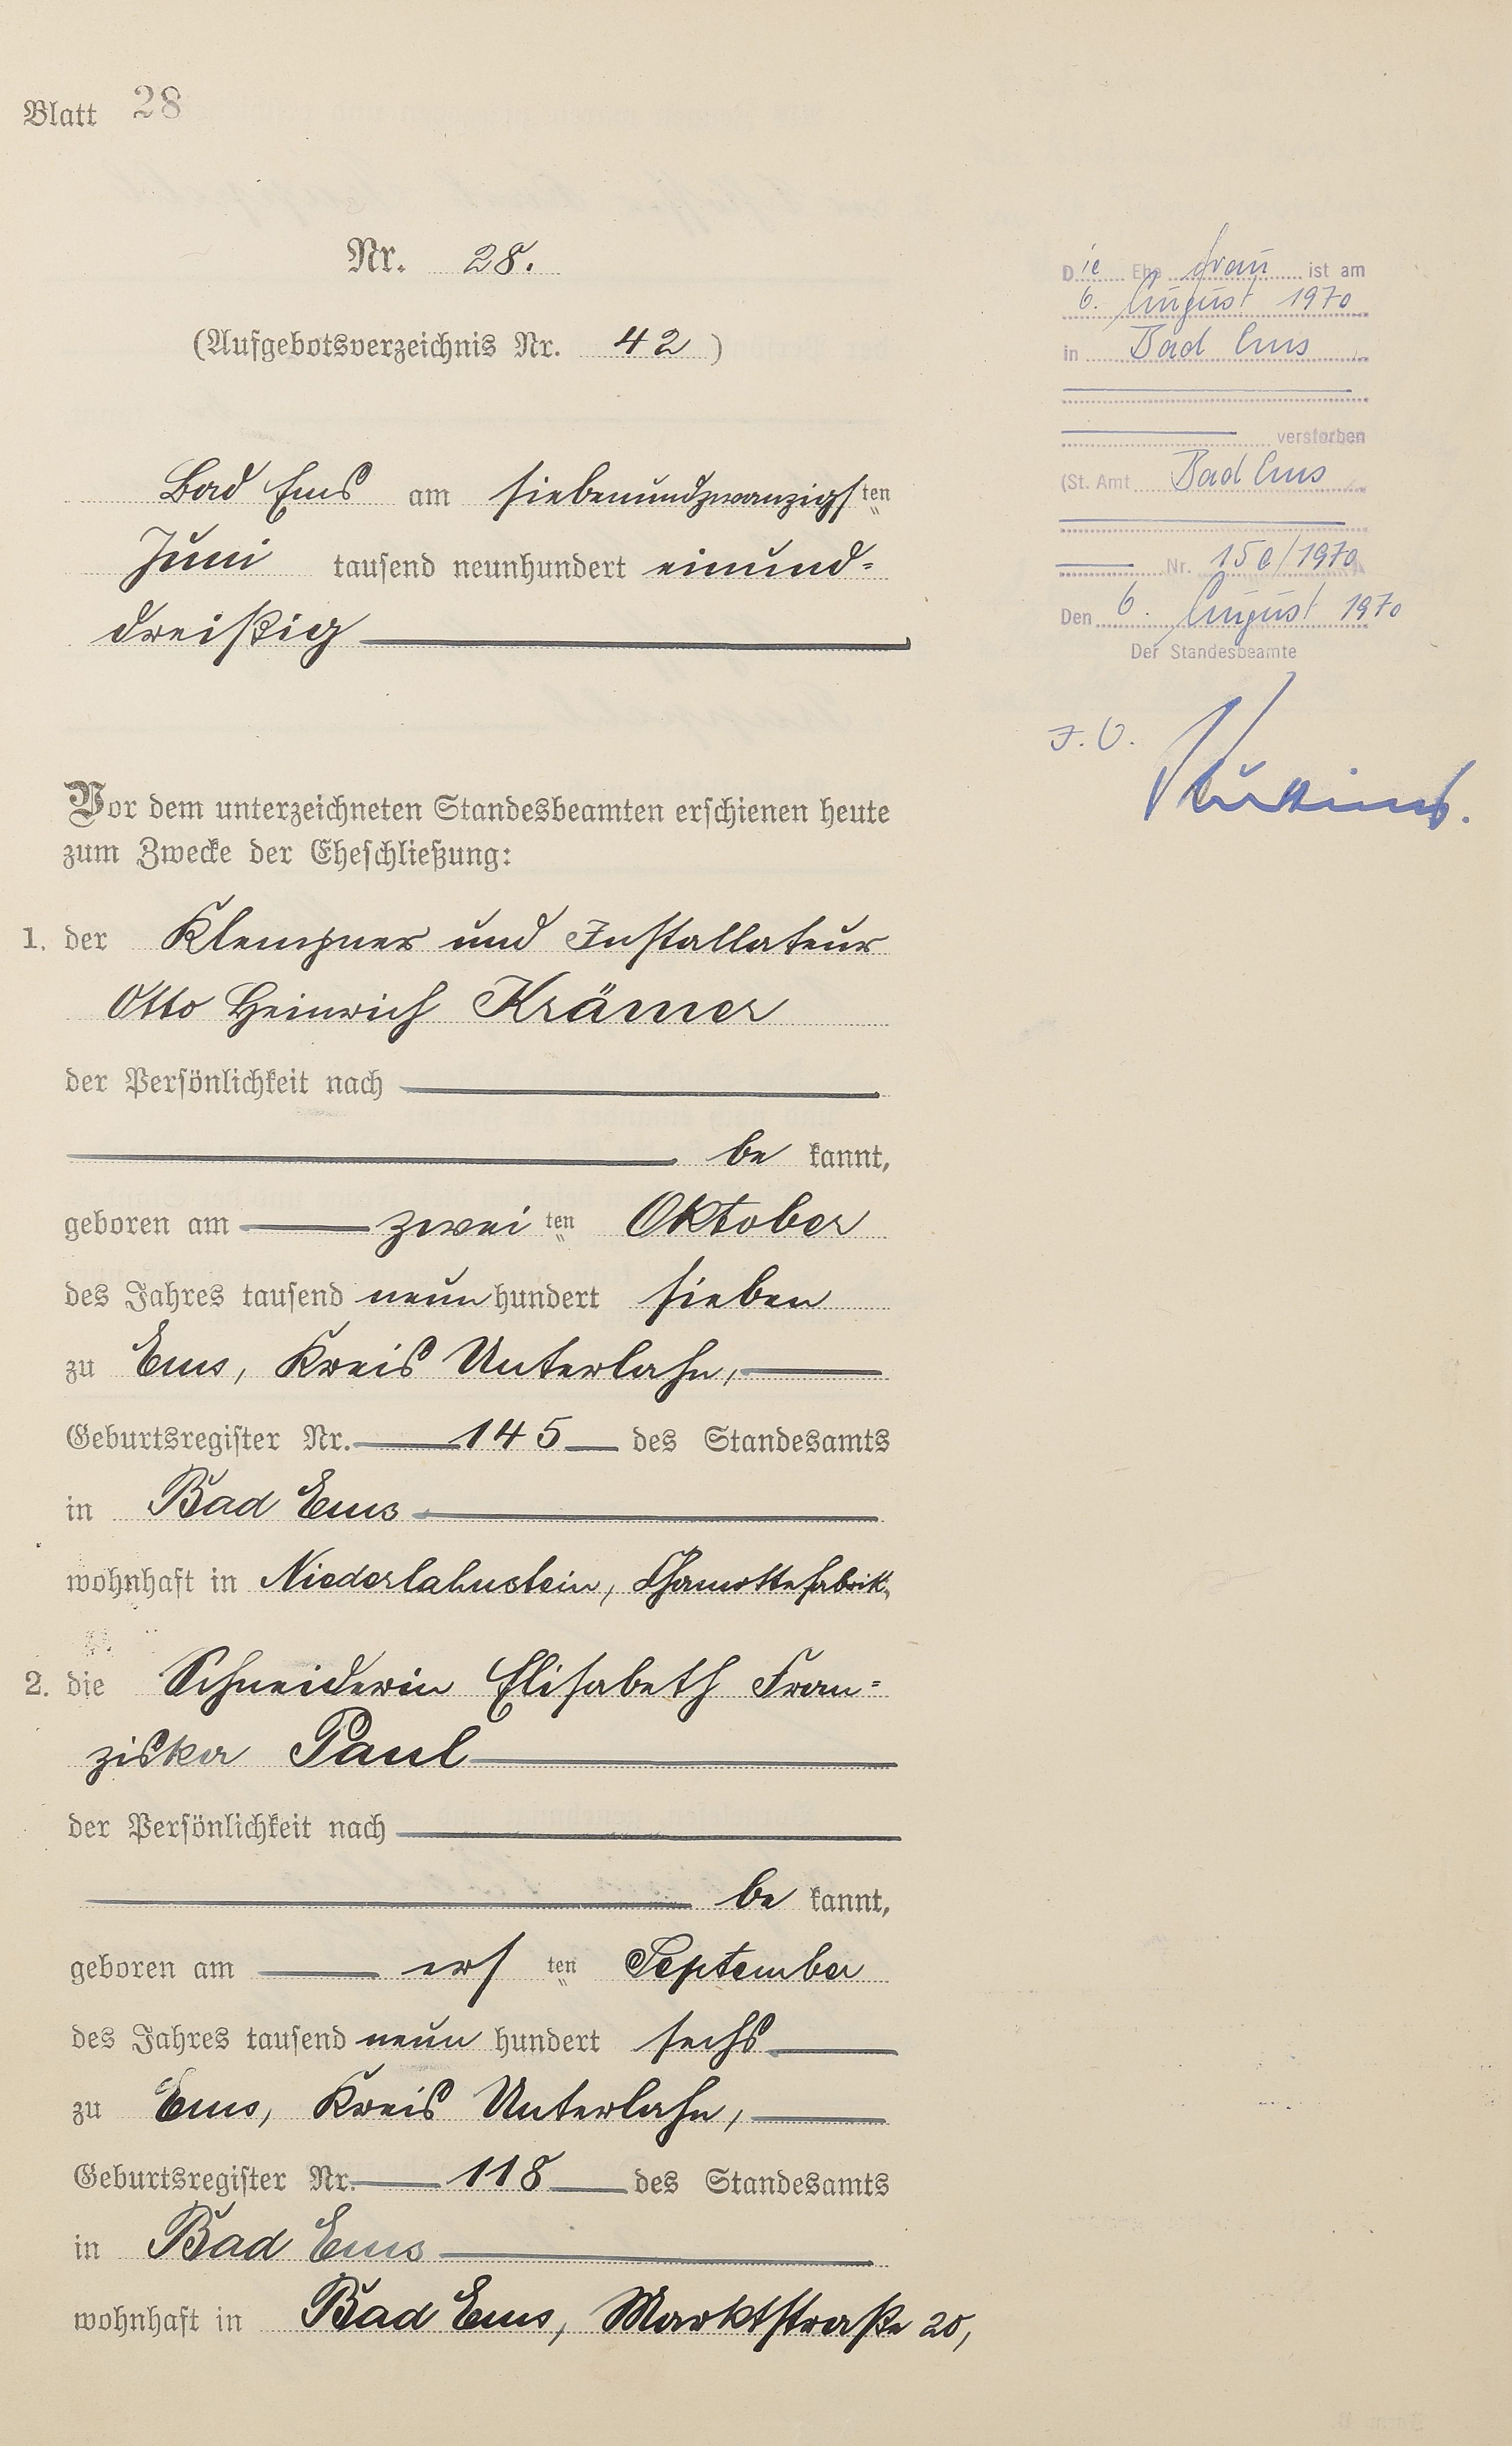 Blatt 28
Nr. 28.
(Aufgebotsverzeichnis Nr. 42)
Bad Ems am siebenundzwanzigsten
Juni tausend neunhundert einund=
dreißig
Vor dem unterzeichneten Standesbeamten erschienen heute
zum Zwecke der Eheschließung:
1. der Klempner und Installateur
Otto Heinrich Krämer
der Persönlichkeit nach
be kannt,
geboren am zwei ten Oktober
des Jahres tausend neun hundert sieben
zu Ems, Kreis Unterlahn,
Geburtsregister Nr. 145 des Standesamts
in Bad Ems
wohnhaft in Niederlahnstein, Chamottefabrik,
2. die Schneiderin Elisabeth Fran=
ziska Paul
der Persönlichkeit nach
be kannt,
geboren am ers ten September
des Jahres tausend neun hundert sechs
zu Ems, Kreis Unterlahn,
Geburtsregister Nr. 118 des Standesamts
in Bad Ems
wohnhaft in Bad Ems, Marktstraße 20,
Die Ehe frau ist am
6. August 1970
in Bad Ems
verstorben
(St. Amt Bad Ems
Nr. /1970
Den 6. August 1970
Der Standesbeamte
I.V.